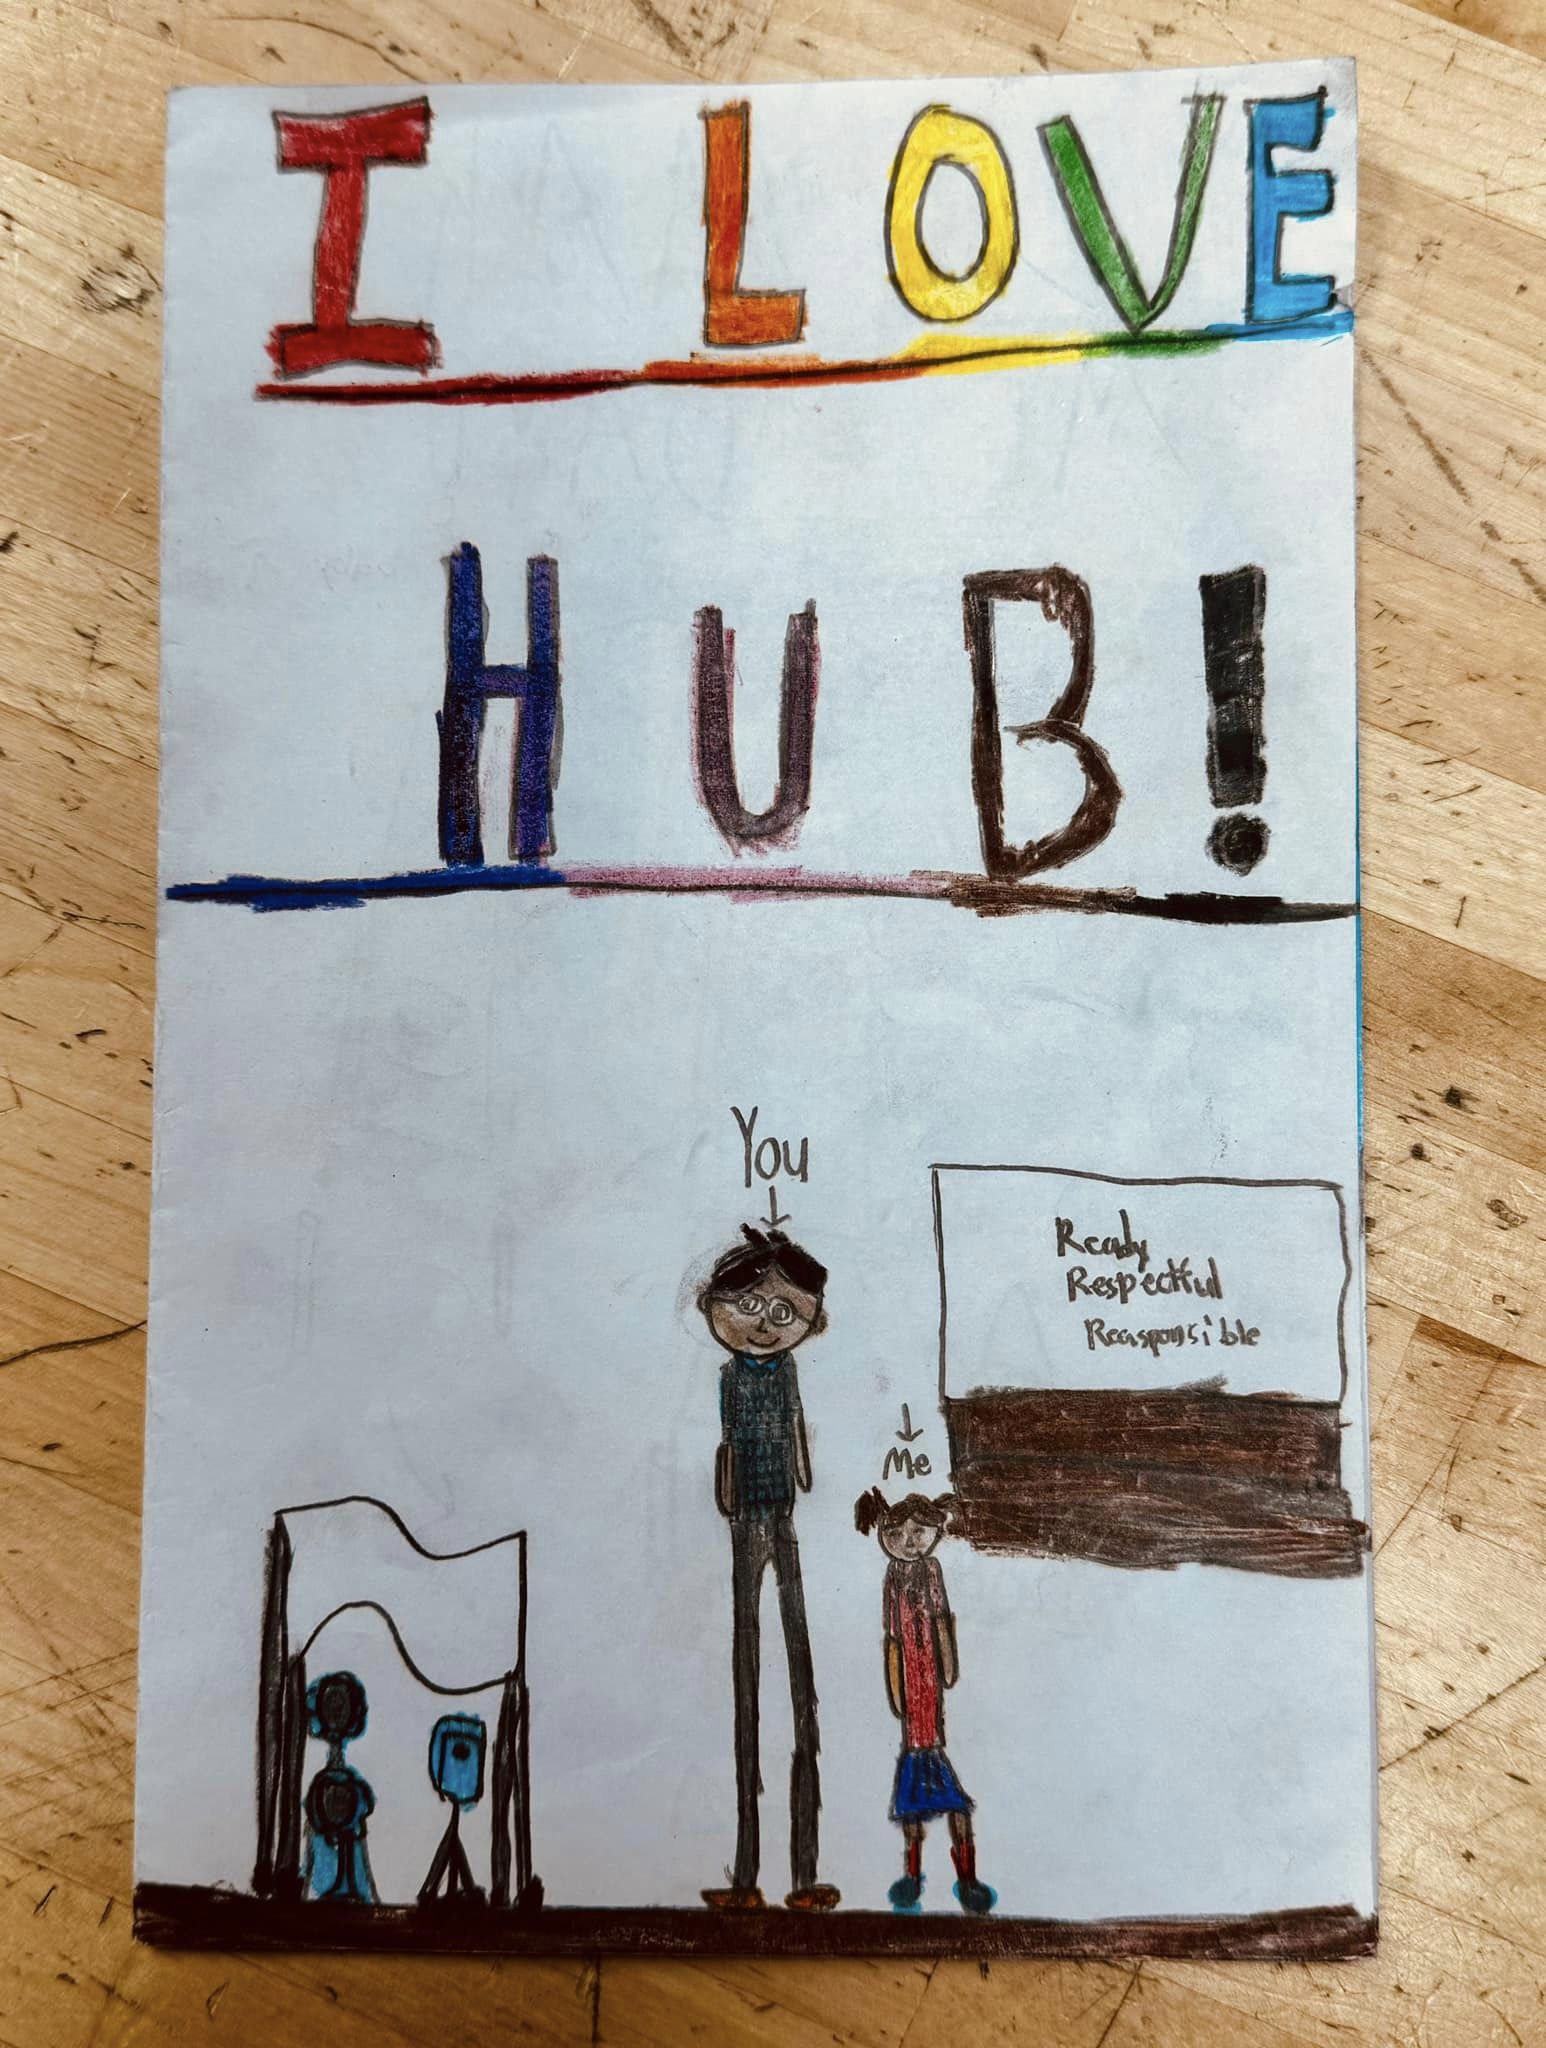 I LOVE
HUB!
You
Ready
Respectful
Reasponsible
Me